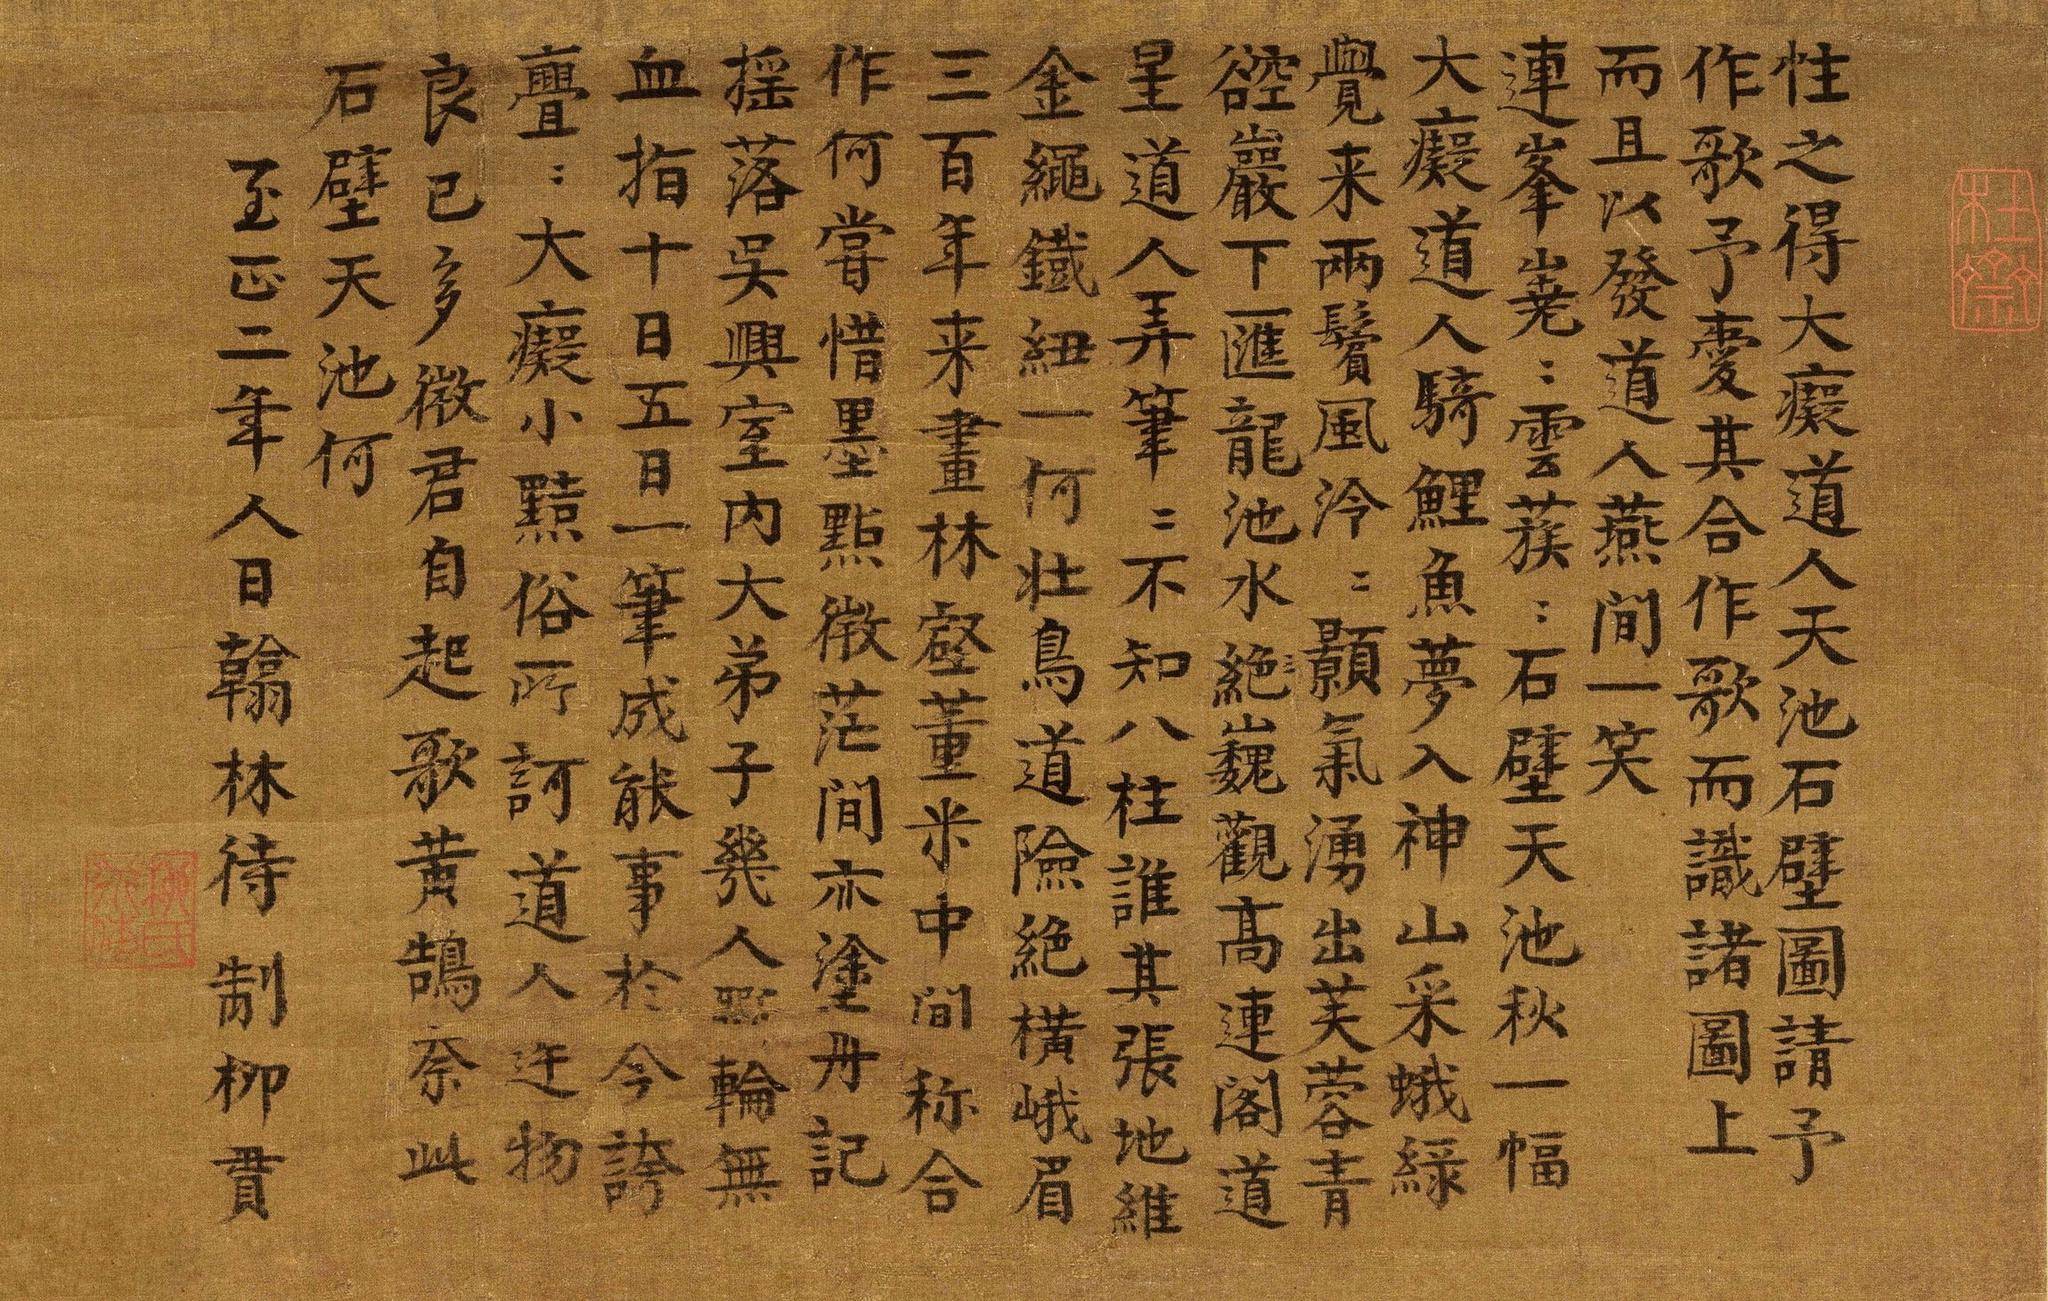 性之得大癡道人天池石壁圖請予
作歌予愛其合作歌而識諸圖上
而且以發道人燕間一笑
連峯嶤〻雲蔟〻石壁天池秋一幅
大癡道人騎鯉魚夢入神山采蛾綠
覺来兩鬢風泠〻顥氣湧出芙蓉青
硿巖下匯龍池水絕巘巍觀髙連閣道
星道人弄筆〻不知八柱誰其張地維
金繩鐵紐一何壮鳥道險絕橫峨眉
三百年来畫林壑董米中間称合
作何嘗惜墨㸃微茫間亦塗丹記
揺落吳興室内大弟子㡬人輪無
血指十日五日一筆成能事於今誇
亹〻大癡小黠俗所訶道人迕物
良已多微君自起歌黄鵠奈此
石壁天池何
至正二年人日翰林待制柳貫